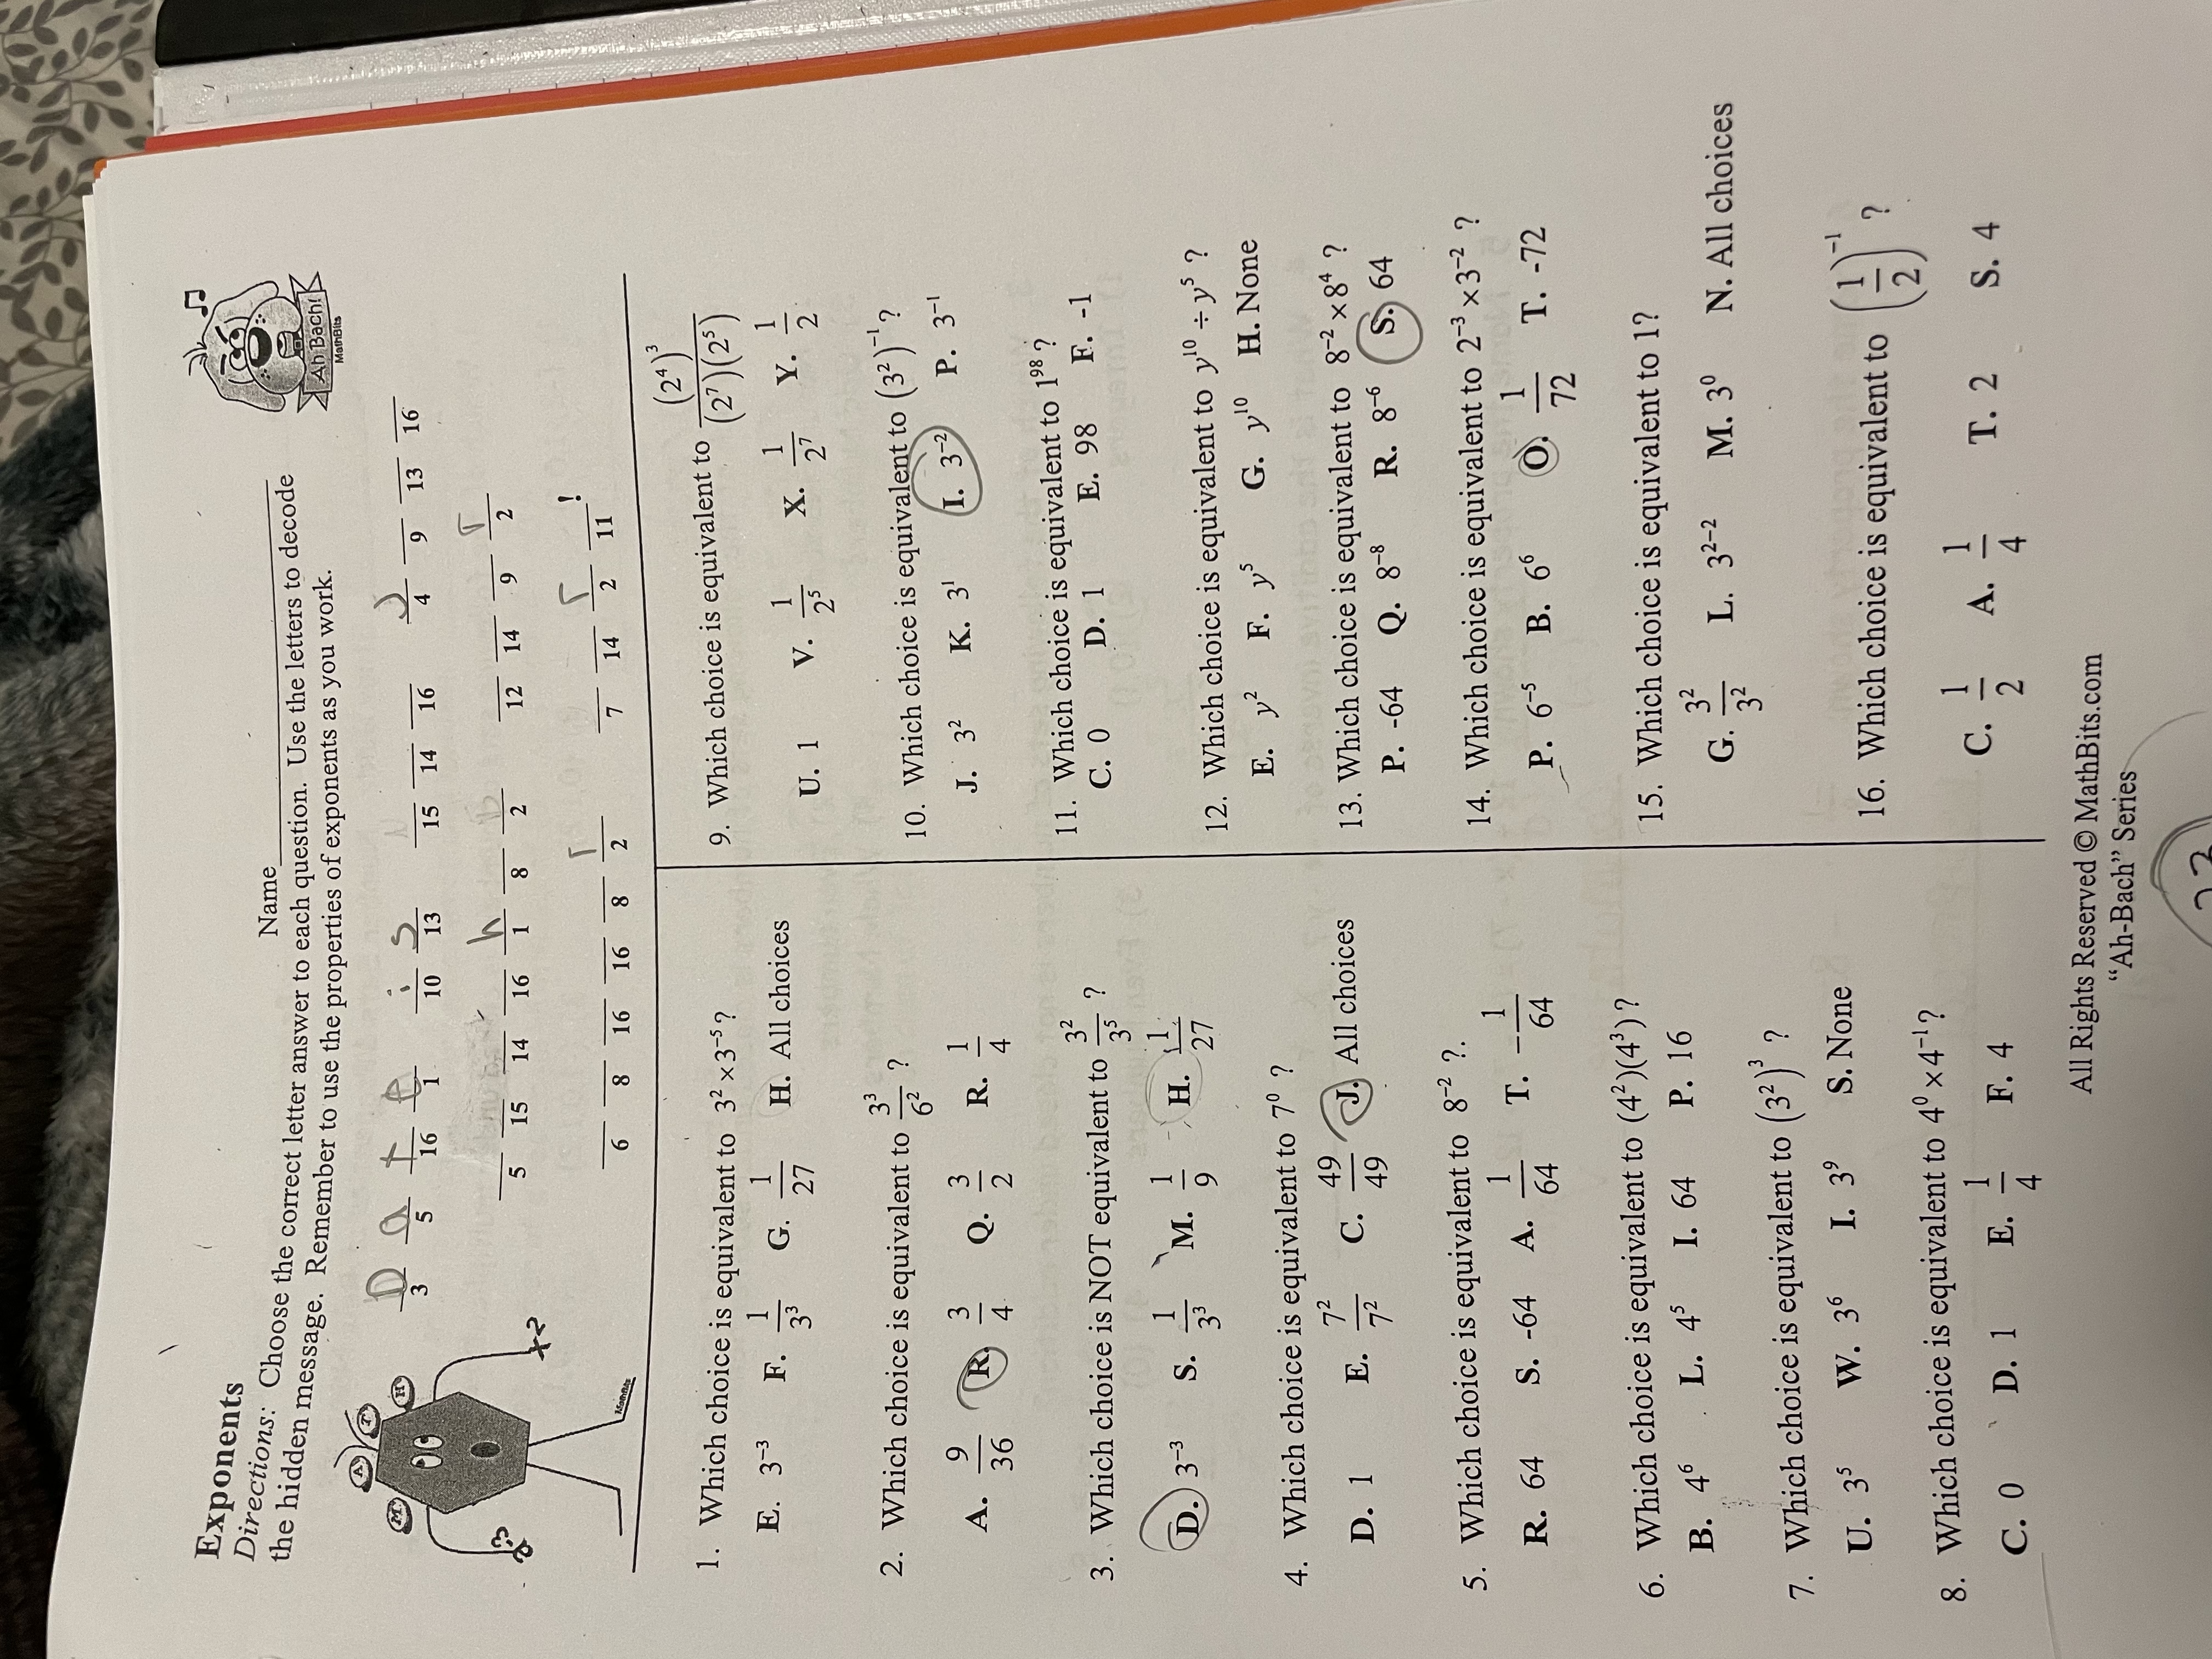 Exponents
Name
Directions: Choose the correct letter answer to each question. Use the letters to decode
the hidden message. Remember to use the properties of exponents as you work.
Ah Bach!
MathBits
M A T H
MathBits
D a t e i s J
3 5 16 1 10 13 15 14 16 4 9 13 16
h r
5 15 14 16 1 8 2 12 14 9 2
r r !
6 8 16 16 8 2 7 14 2 11
1. Which choice is equivalent to 3² × 3⁻⁵ ?
E. 3⁻³ F. 1/3³ G. 1/27 H. All choices
2. Which choice is equivalent to 3³/6² ?
A. 9/36 R. 3/4 Q. 3/2 R. 1/4
3. Which choice is NOT equivalent to 3²/3⁵ ?
D. 3⁻³ S. 1/3³ M. 1/9 H. 1/27
4. Which choice is equivalent to 7⁰ ?
D. 1 E. 7²/7² C. 49/49 J. All choices
5. Which choice is equivalent to 8⁻² ?
R. 64 S. -64 A. 1/64 T. -1/64
6. Which choice is equivalent to (4²)(4³) ?
B. 4⁶ L. 4⁵ I. 64 P. 16
7. Which choice is equivalent to (3²)³ ?
U. 3⁵ W. 3⁶ I. 3⁹ S. None
8. Which choice is equivalent to 4⁰ × 4⁻¹ ?
C. 0 D. 1 E. 1/4 F. 4
9. Which choice is equivalent to (2⁴)³/(2⁷)(2⁵)
U. 1 V. 1/2⁵ X. 1/2⁷ Y. 1/2
10. Which choice is equivalent to (3²)⁻¹ ?
J. 3² K. 3¹ I. 3⁻² P. 3⁻¹
11. Which choice is equivalent to 1⁹⁸ ?
C. 0 D. 1 E. 98 F. -1
12. Which choice is equivalent to y¹⁰ ÷ y⁵ ?
E. y² F. y⁵ G. y¹⁰ H. None
13. Which choice is equivalent to 8⁻² × 8⁴ ?
P. -64 Q. 8⁻⁸ R. 8⁻⁶ S. 64
14. Which choice is equivalent to 2⁻³ × 3⁻² ?
P. 6⁻⁵ B. 6⁶ O. 1/72 T. -72
15. Which choice is equivalent to 1?
G. 3²/3² L. 3²⁻² M. 3⁰ N. All choices
16. Which choice is equivalent to (1/2)⁻¹ ?
C. 1/2 A. 1/4 T. 2 S. 4
All Rights Reserved © MathBits.com
"Ah-Bach" Series